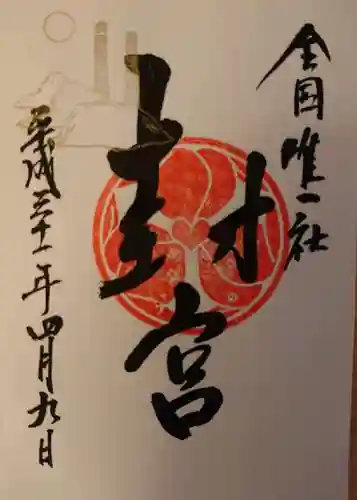 全国唯一社
封宮
平成三十一年四月九日